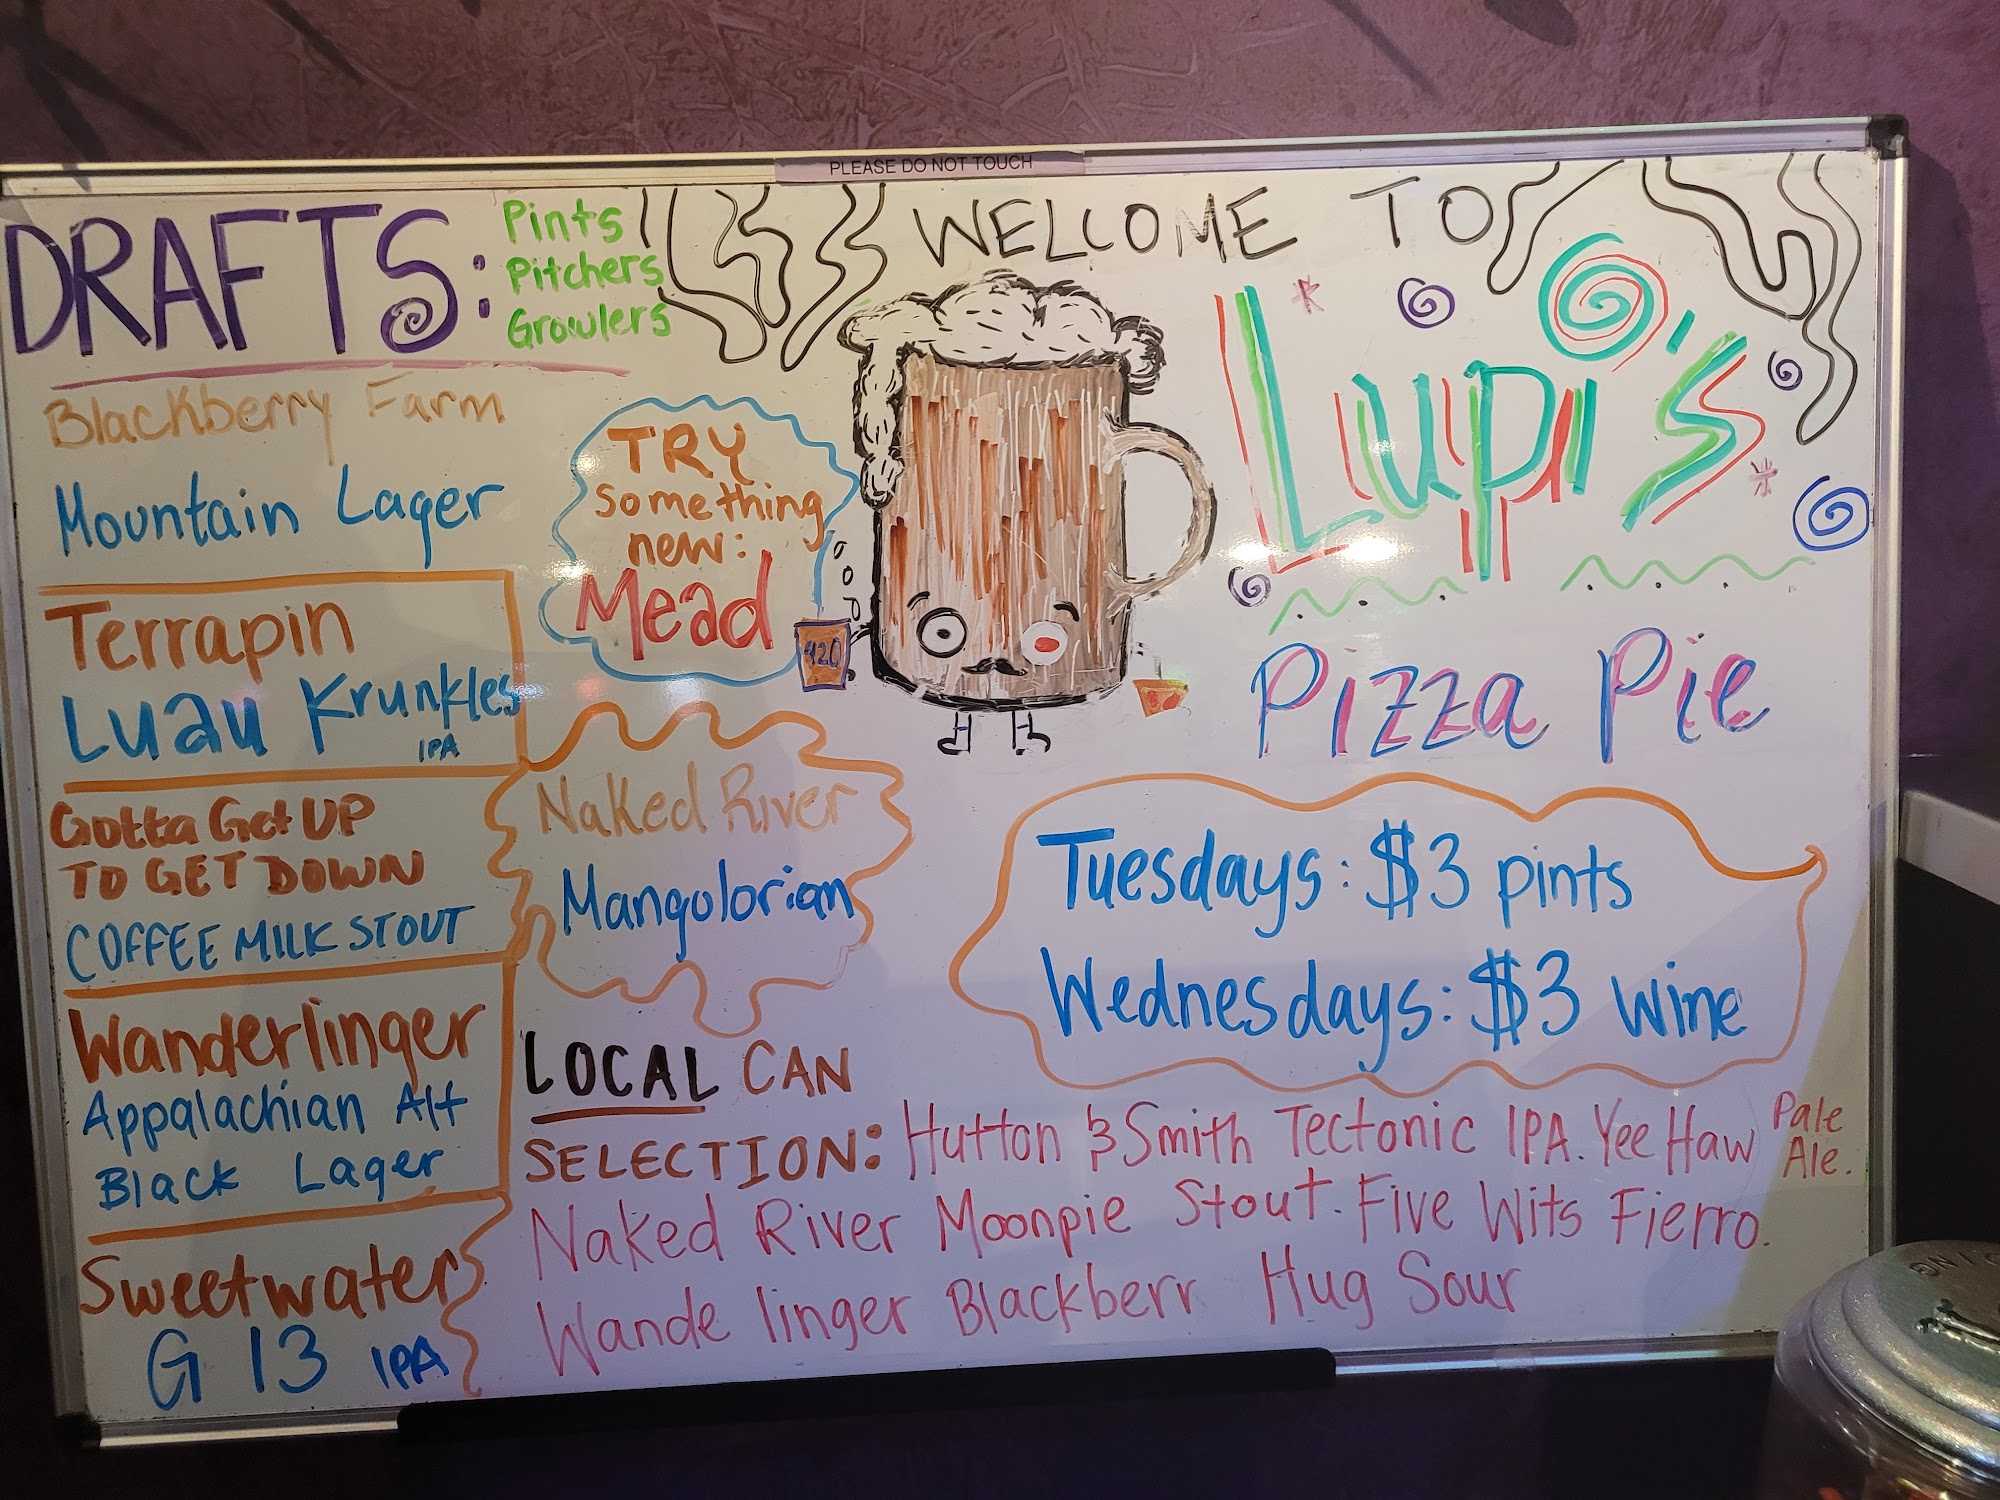 PLEASE DO NOT TOUCH
DRAFTS:
Pints
Pitchers
Growlers
WELCOME TO
Lupi's
Pizza Pie
Blackberry Farm
Mountain Lager
Terrapin
Luau Krunkles
IPA
Gotta Get UP
TO GET DOWN
COFFEE MILK STOUT
Wanderlinger
Appalachian Alt
Black Lager
Sweetwater
G 13 IPA
TRY
something
new:
Mead
420
Naked River
Mangolorian
Tuesdays: $3 pints
Wednesdays: $3 wine
LOCAL CAN
SELECTION: Hutton & Smith Tectonic IPA. Yee Haw Pale Ale.
Naked River Moonpie Stout. Five Wits Fierro.
Wande linger Blackberr Hug Sour